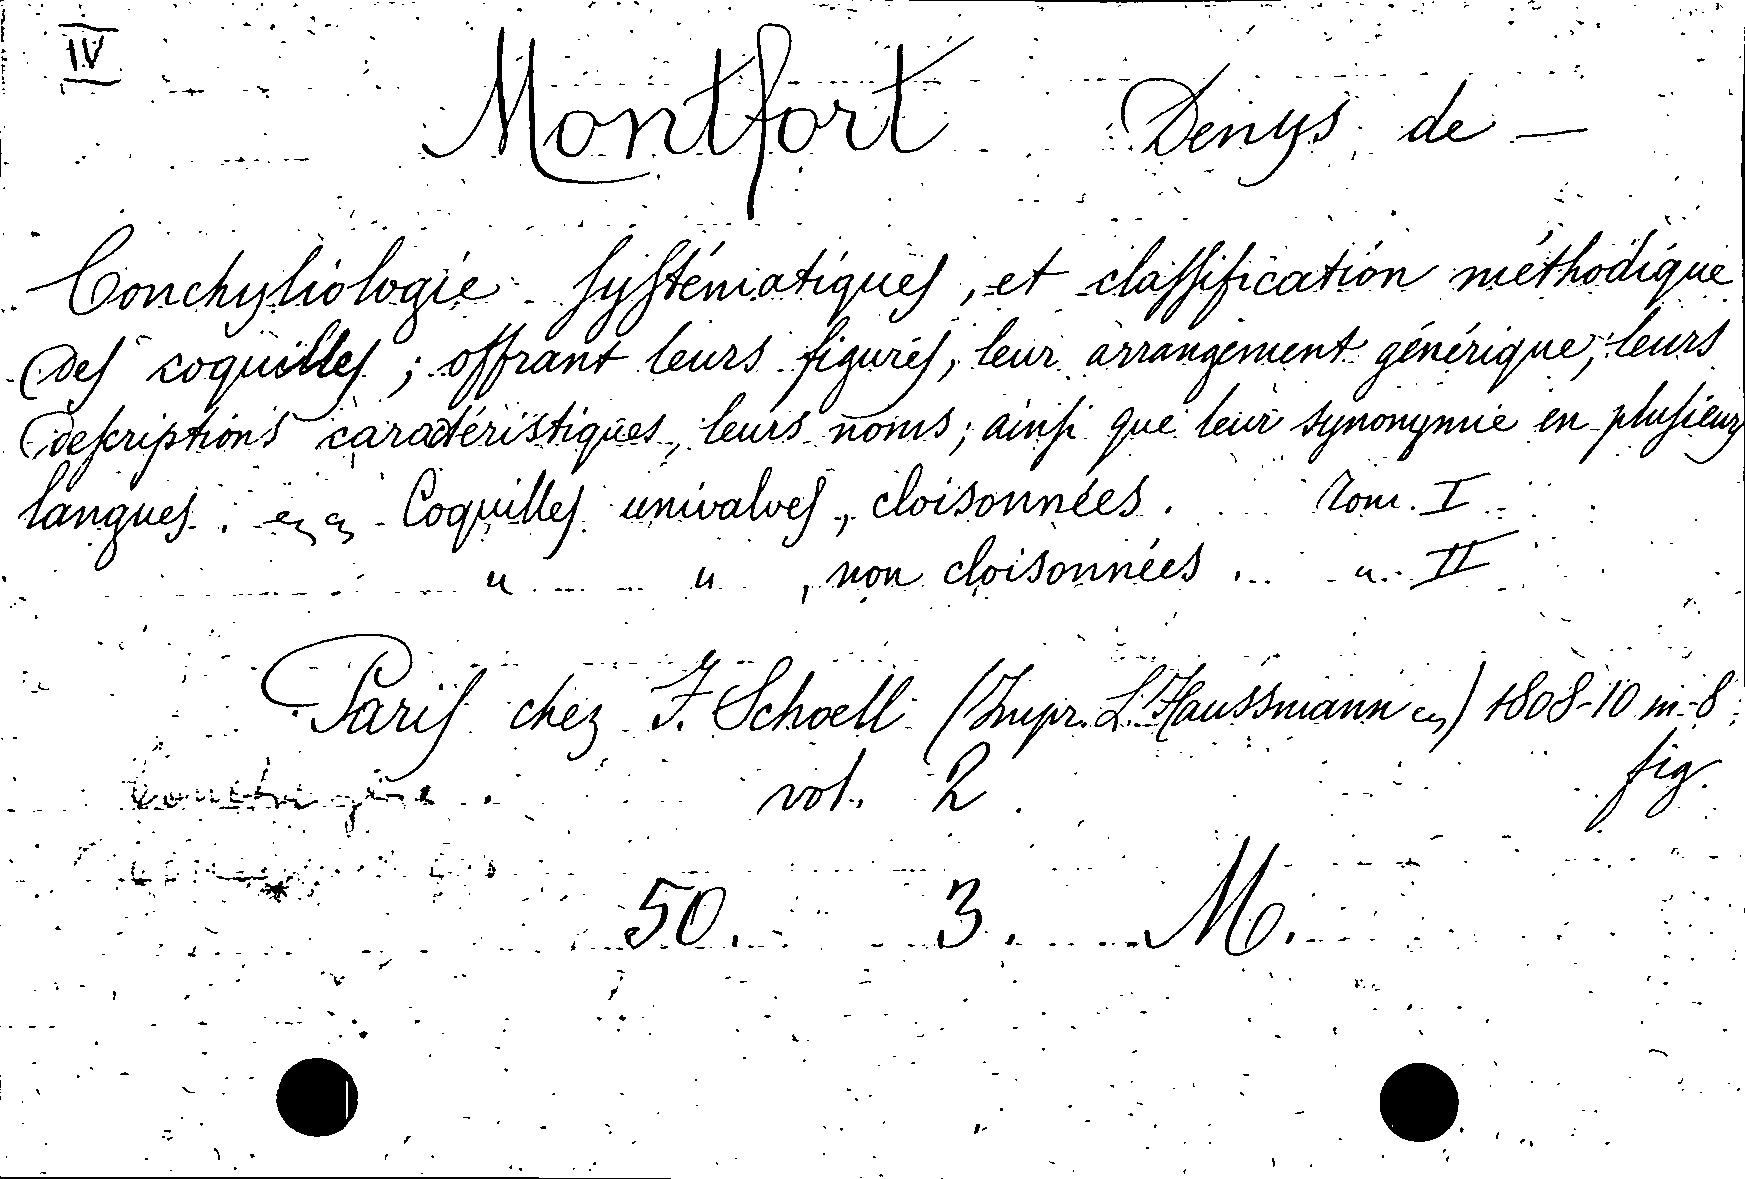 IV
Montfort Denys de —
Conchyliologie systématiques, et classification méthodique
des coquilles; offrant leurs figures, leur arrangement générique, leurs
descriptions caractéristiques, leurs noms; ainsi que leur synonymie en plusieurs
langues. Coquilles univalves, cloisonnées. Tom. I
" " , non cloisonnées. " II
Paris chez F. Schoell (Impr. L. Haussmann) 1808-10 in-8
vol. 2. fig.
50. 3. M.